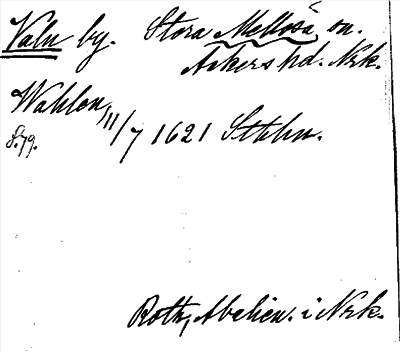 Valn by. Stora Mellösa sn.
Askers hd. Nrk.
Wahlen, 11/7 1621 Sthlm.
S. 79.
Roth, Abelien. i Nrk.